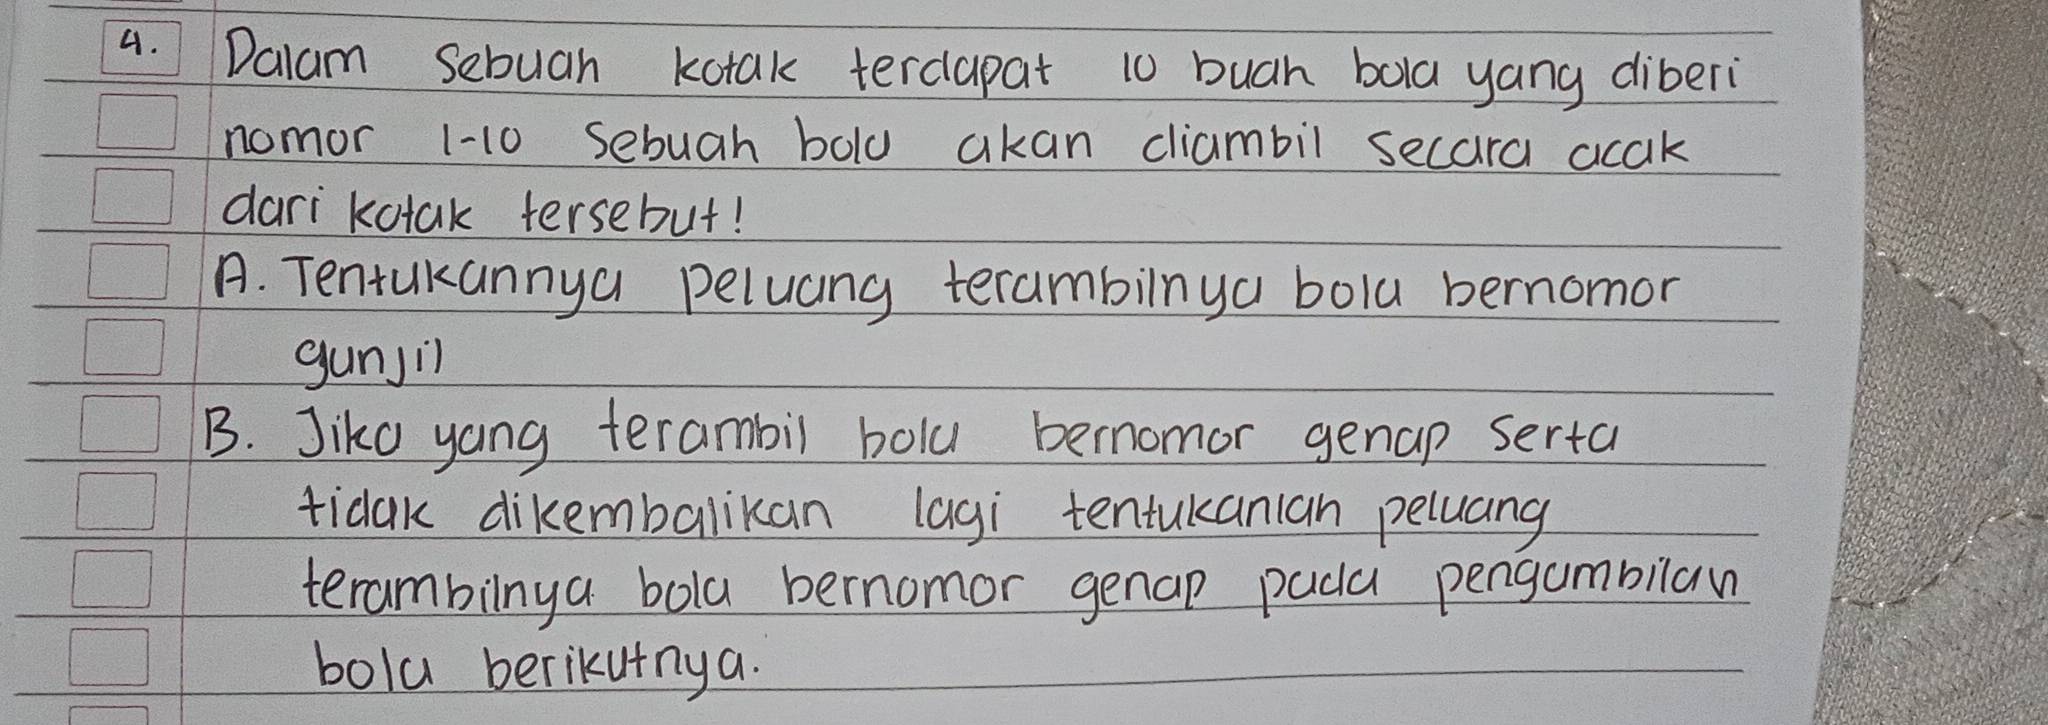 4. Dalam sebuah kotak terdapat 10 buah bola yang diberi
nomor 1-10 Sebuah bola akan diambil secara acak
dari kotak tersebut!
A. Tentukannya peluang terambilnya bola bernomor
gunjil
B. Jika yang terambil bola bernomor genap serta
tidak dikembalikan lagi tentukanlah peluang
terambilnya bola bernomor genap pada pengambilan
bola berikutnya.